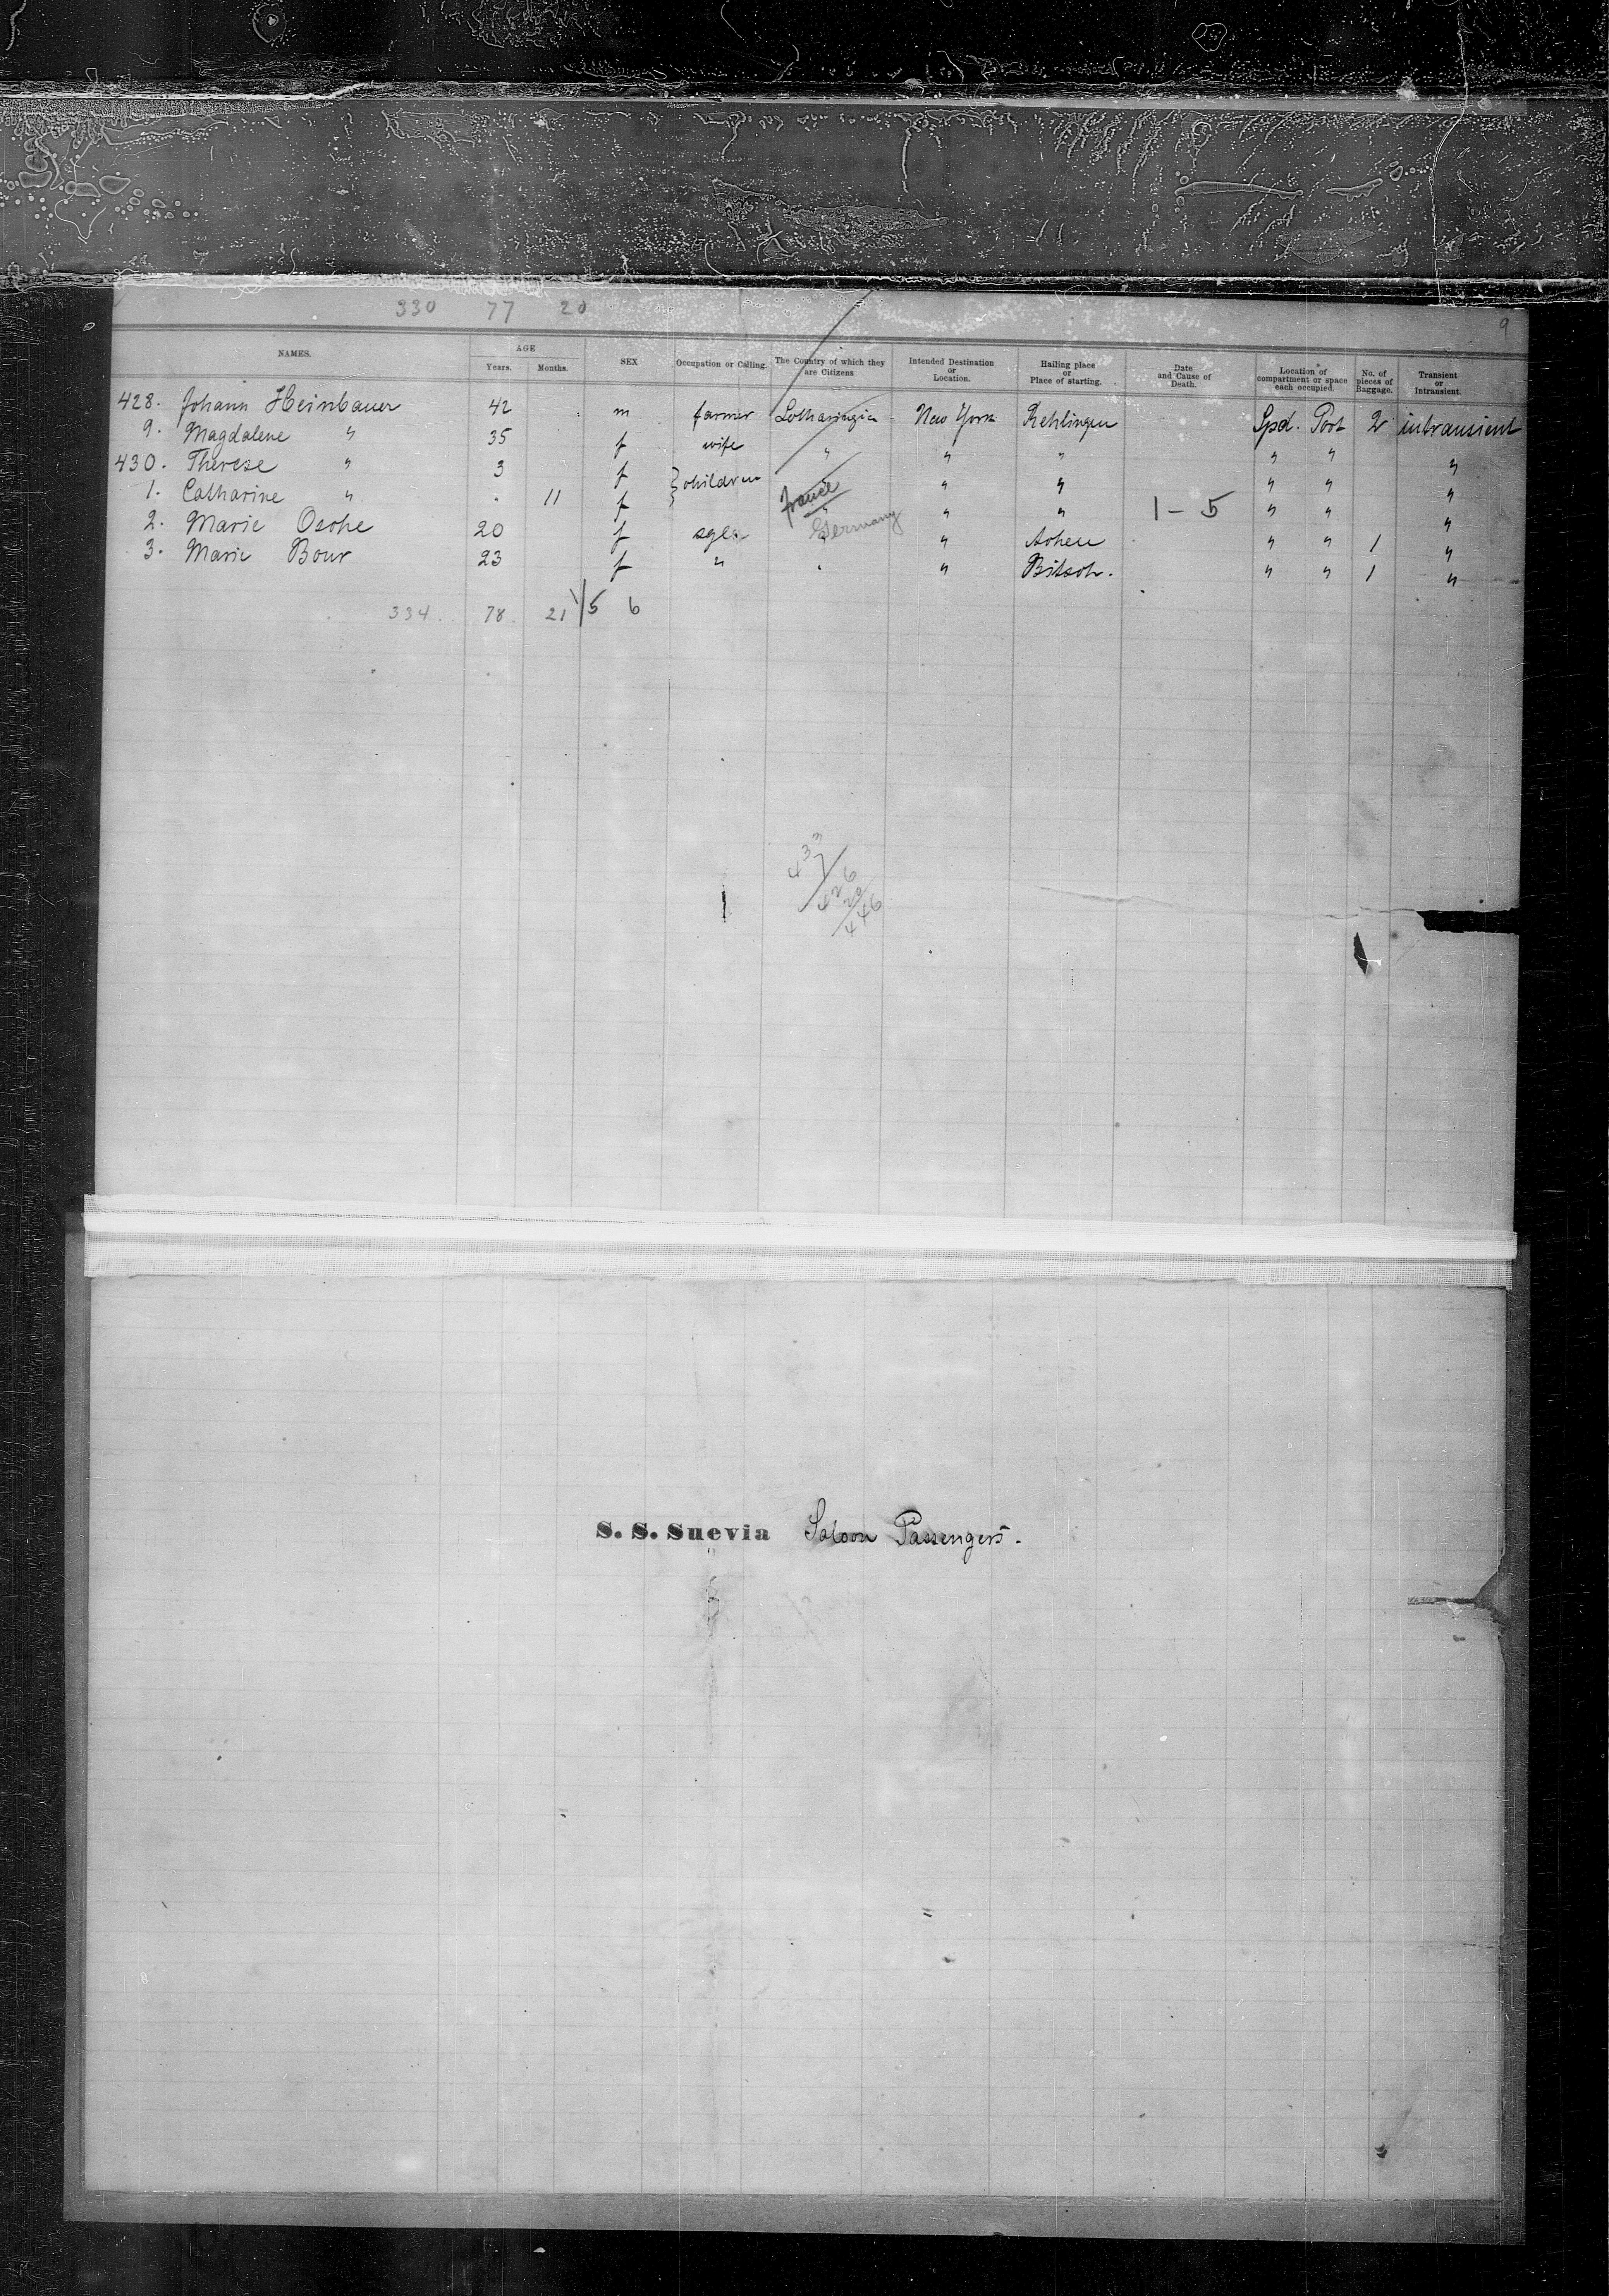 330 77 20
9
NAMES. AGE Years. Months. SEX Occupation or Calling. The Country of which they are Citizens Intended Destination or Location. Hailing place or Place of starting. Date and Cause of Death. Location of compartment or space each occupied. No. of pieces of Baggage. Transient or Intransient.
428. Johann Heinbauer 42 m farmer Lotharingia New York Rehlingen Spd. Port 2 intransient
9. Magdalene " 35 f wife " " " " " "
430. Therese " 3 f } children " " " " "
1. Catharine " 11 f france " " " 1 - 5 " " "
2. Marie Osche 20 f sgle. Germany " Achen " " 1 "
3. Marie Bour 23 f " " Bitsch. " " 1 "
334. 78. 21 5 6
433
7
426
20
446
S. S. Suevia Saloon Passengers.